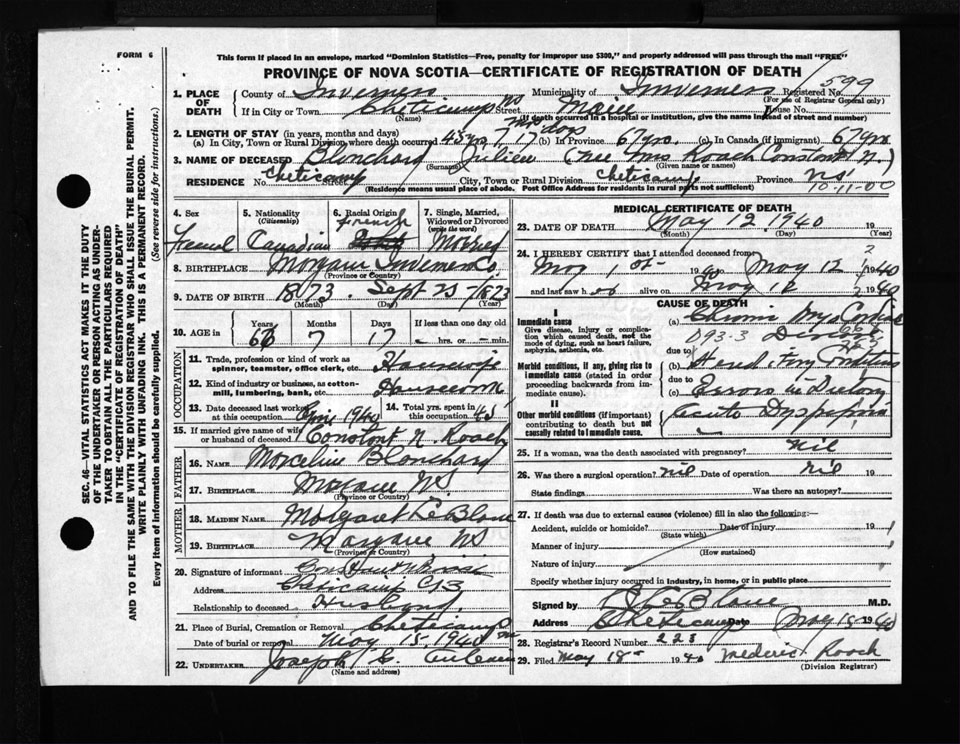 FORM 6
This form if placed in an envelope, marked "Dominion Statistics—Free, penalty for improper use $300," and properly addressed will pass through the mail "FREE"
PROVINCE OF NOVA SCOTIA—CERTIFICATE OF REGISTRATION OF DEATH
599
SEC. 46—VITAL STATISTICS ACT MAKES IT THE DUTY
OF THE UNDERTAKER OR PERSON ACTING AS UNDER-
TAKER TO OBTAIN ALL THE PARTICULARS REQUIRED
IN THE "CERTIFICATE OF REGISTRATION OF DEATH"
AND TO FILE THE SAME WITH THE DIVISION REGISTRAR WHO SHALL ISSUE THE BURIAL PERMIT.
WRITE PLAINLY WITH UNFADING INK. THIS IS A PERMANENT RECORD.
Every item of information should be carefully supplied. (See reverse side for instructions.)
1. PLACE OF DEATH
County of Inverness Municipality of Inverness Registered No.
(For use of Registrar General only)
If in City or Town Cheticamp NS Street House No.
(Name) (If death occurred in a hospital or institution, give the name instead of street and number)
2. LENGTH OF STAY (in years, months and days)
(a) In City, Town or Rural Division where death occurred 45 yrs 7 mos 17 days (b) In Province 67 yrs. (c) In Canada (if immigrant) 67 yrs
3. NAME OF DECEASED Blanchard Julien (nee Mrs Roach Constant N.)
(Surname) (Given name or names)
RESIDENCE No. Cheticamp Street City, Town or Rural Division Cheticamp Province NS
(Residence means usual place of abode. Post Office Address for residents in rural parts not sufficient) 10-11-00
4. Sex
Femal
5. Nationality
(Citizenship)
Canadian
6. Racial Origin
French
7. Single, Married, Widowed or Divorced
(write the word)
Married
8. BIRTHPLACE Margaree Inverness Co.
(Province or Country)
9. DATE OF BIRTH 1873 Sept 25 - 1873
(Month) (Day) (Year)
10. AGE in Years Months Days If less than one day old
66 7 17 hrs. or min.
OCCUPATION
11. Trade, profession or kind of work as
spinner, teamster, office clerk, etc. Housewife
12. Kind of industry or business, as cotton-
mill, lumbering, bank, etc. Housework
13. Date deceased last worked
at this occupation 1940
14. Total yrs. spent in
this occupation 45
15. If married give name of wife
or husband of deceased Constant N. Roach
FATHER
16. Name Marceline Blanchard
17. Birthplace Margaree NS
(Province or Country)
MOTHER
18. Maiden Name Margaret LeBlanc
19. Birthplace Margaree NS
(Province or Country)
20. Signature of informant
Address Cheticamp CB
Relationship to deceased Husband
21. Place of Burial, Cremation or Removal Cheticamp
Date of burial or removal May 15 - 1940
22. UNDERTAKER Joseph
(Name and address)
MEDICAL CERTIFICATE OF DEATH
23. DATE OF DEATH May 12 1940 19
(Month) (Day)
24. I HEREBY CERTIFY that I attended deceased from
May 1st 1940 May 12 1940
and last saw h alive on May 12 1940
CAUSE OF DEATH
I
Immediate cause
Give disease, injury or complication which caused death, not the mode of dying, such as heart failure, asphyxia, asthenia, etc.
(a) Chronic Myocardial
093-3
Morbid conditions, if any, giving rise to immediate cause (stated in order proceeding backwards from immediate cause).
due to
(b)
due to
(c) Errors in Dietary
II
Other morbid conditions (if important) contributing to death but not causally related to immediate cause.
acute Dyspepsia
25. If a woman, was the death associated with pregnancy? Nil
26. Was there a surgical operation? Nil Date of operation Nil 19
State findings Was there an autopsy?
27. If death was due to external causes (violence) fill in also the following:—
Accident, suicide or homicide? Date of injury 19
(State which)
Manner of injury
(How sustained)
Nature of injury
Specify whether injury occurred in industry, in home, or in public place
Signed by LeBlanc M.D.
Address Cheticamp Date May 15 1940
28. Registrar's Record Number 223
29. Filed May 18 1940 Mederic Roach
(Division Registrar)